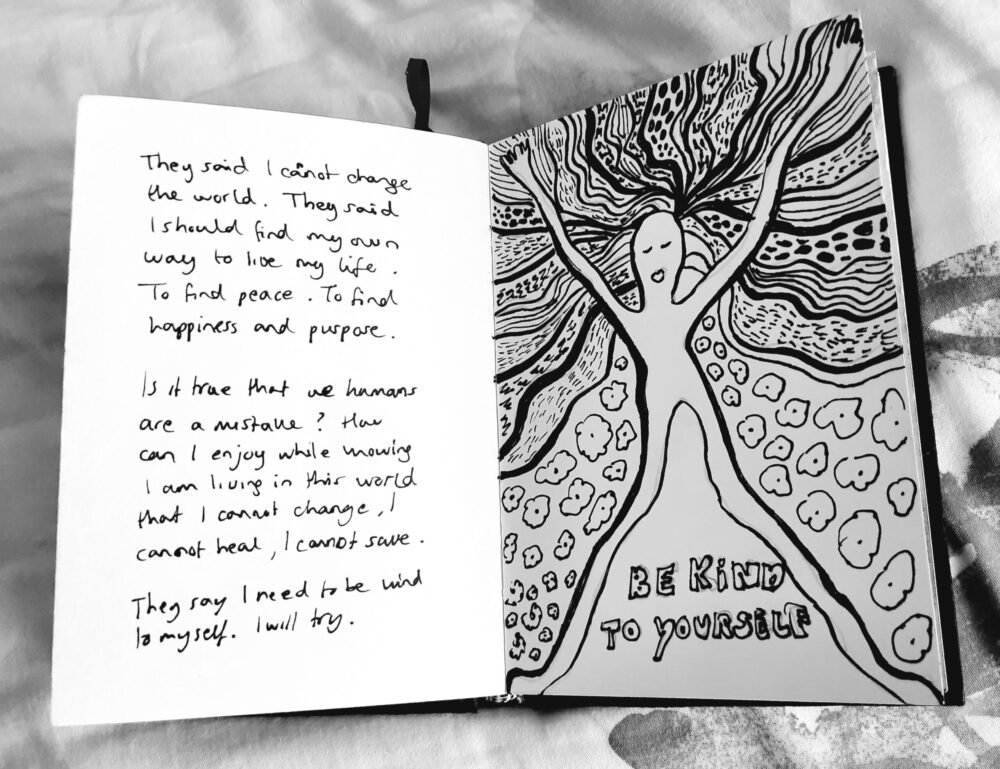 They said I cannot change
the world. They said
I should find my own
way to live my life.
To find peace. To find
happiness and purpose.
Is it true that we humans
are a mistake? How
can I enjoy while knowing
I am living in this world
that I cannot change, I
cannot heal, I cannot save.
They say I need to be kind
to myself. I will try.
BE KIND
TO YOURSELF